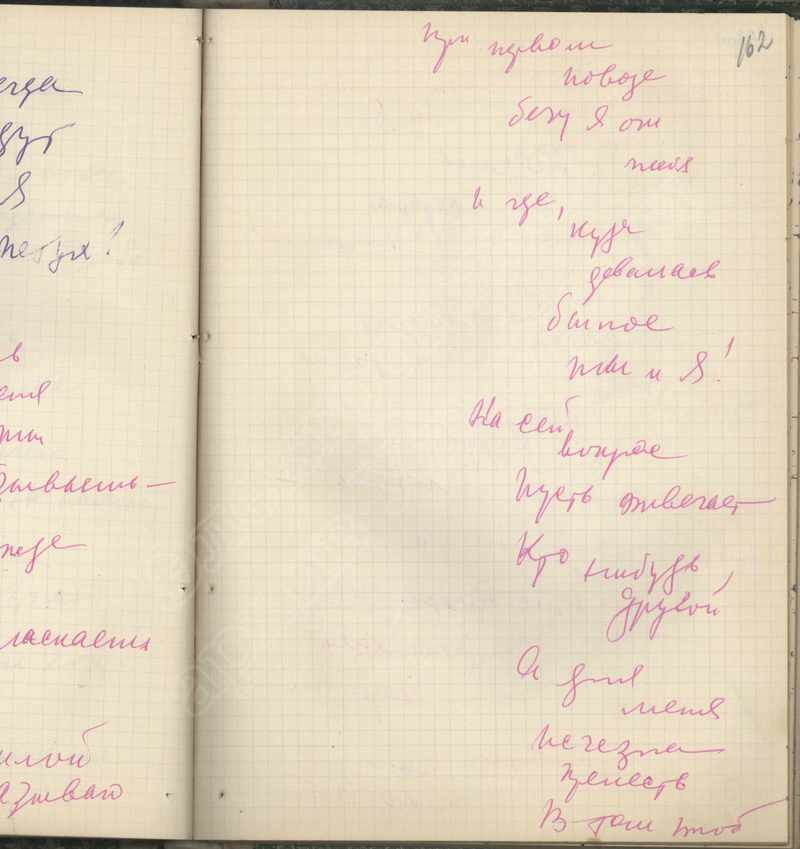 егда
дут
Я
петух!
в
еня
ты
бываешь —
жде
ласкаешь
илой
азываю
162
При первом
поводе
бегу я от
тебя
И где,
куда
девалась
былое
ты и Я!
На сей
вопрос
Пусть отвечает
Кто нибудь,
другой
А для
меня
Исчезла
прелесть
В том чтоб